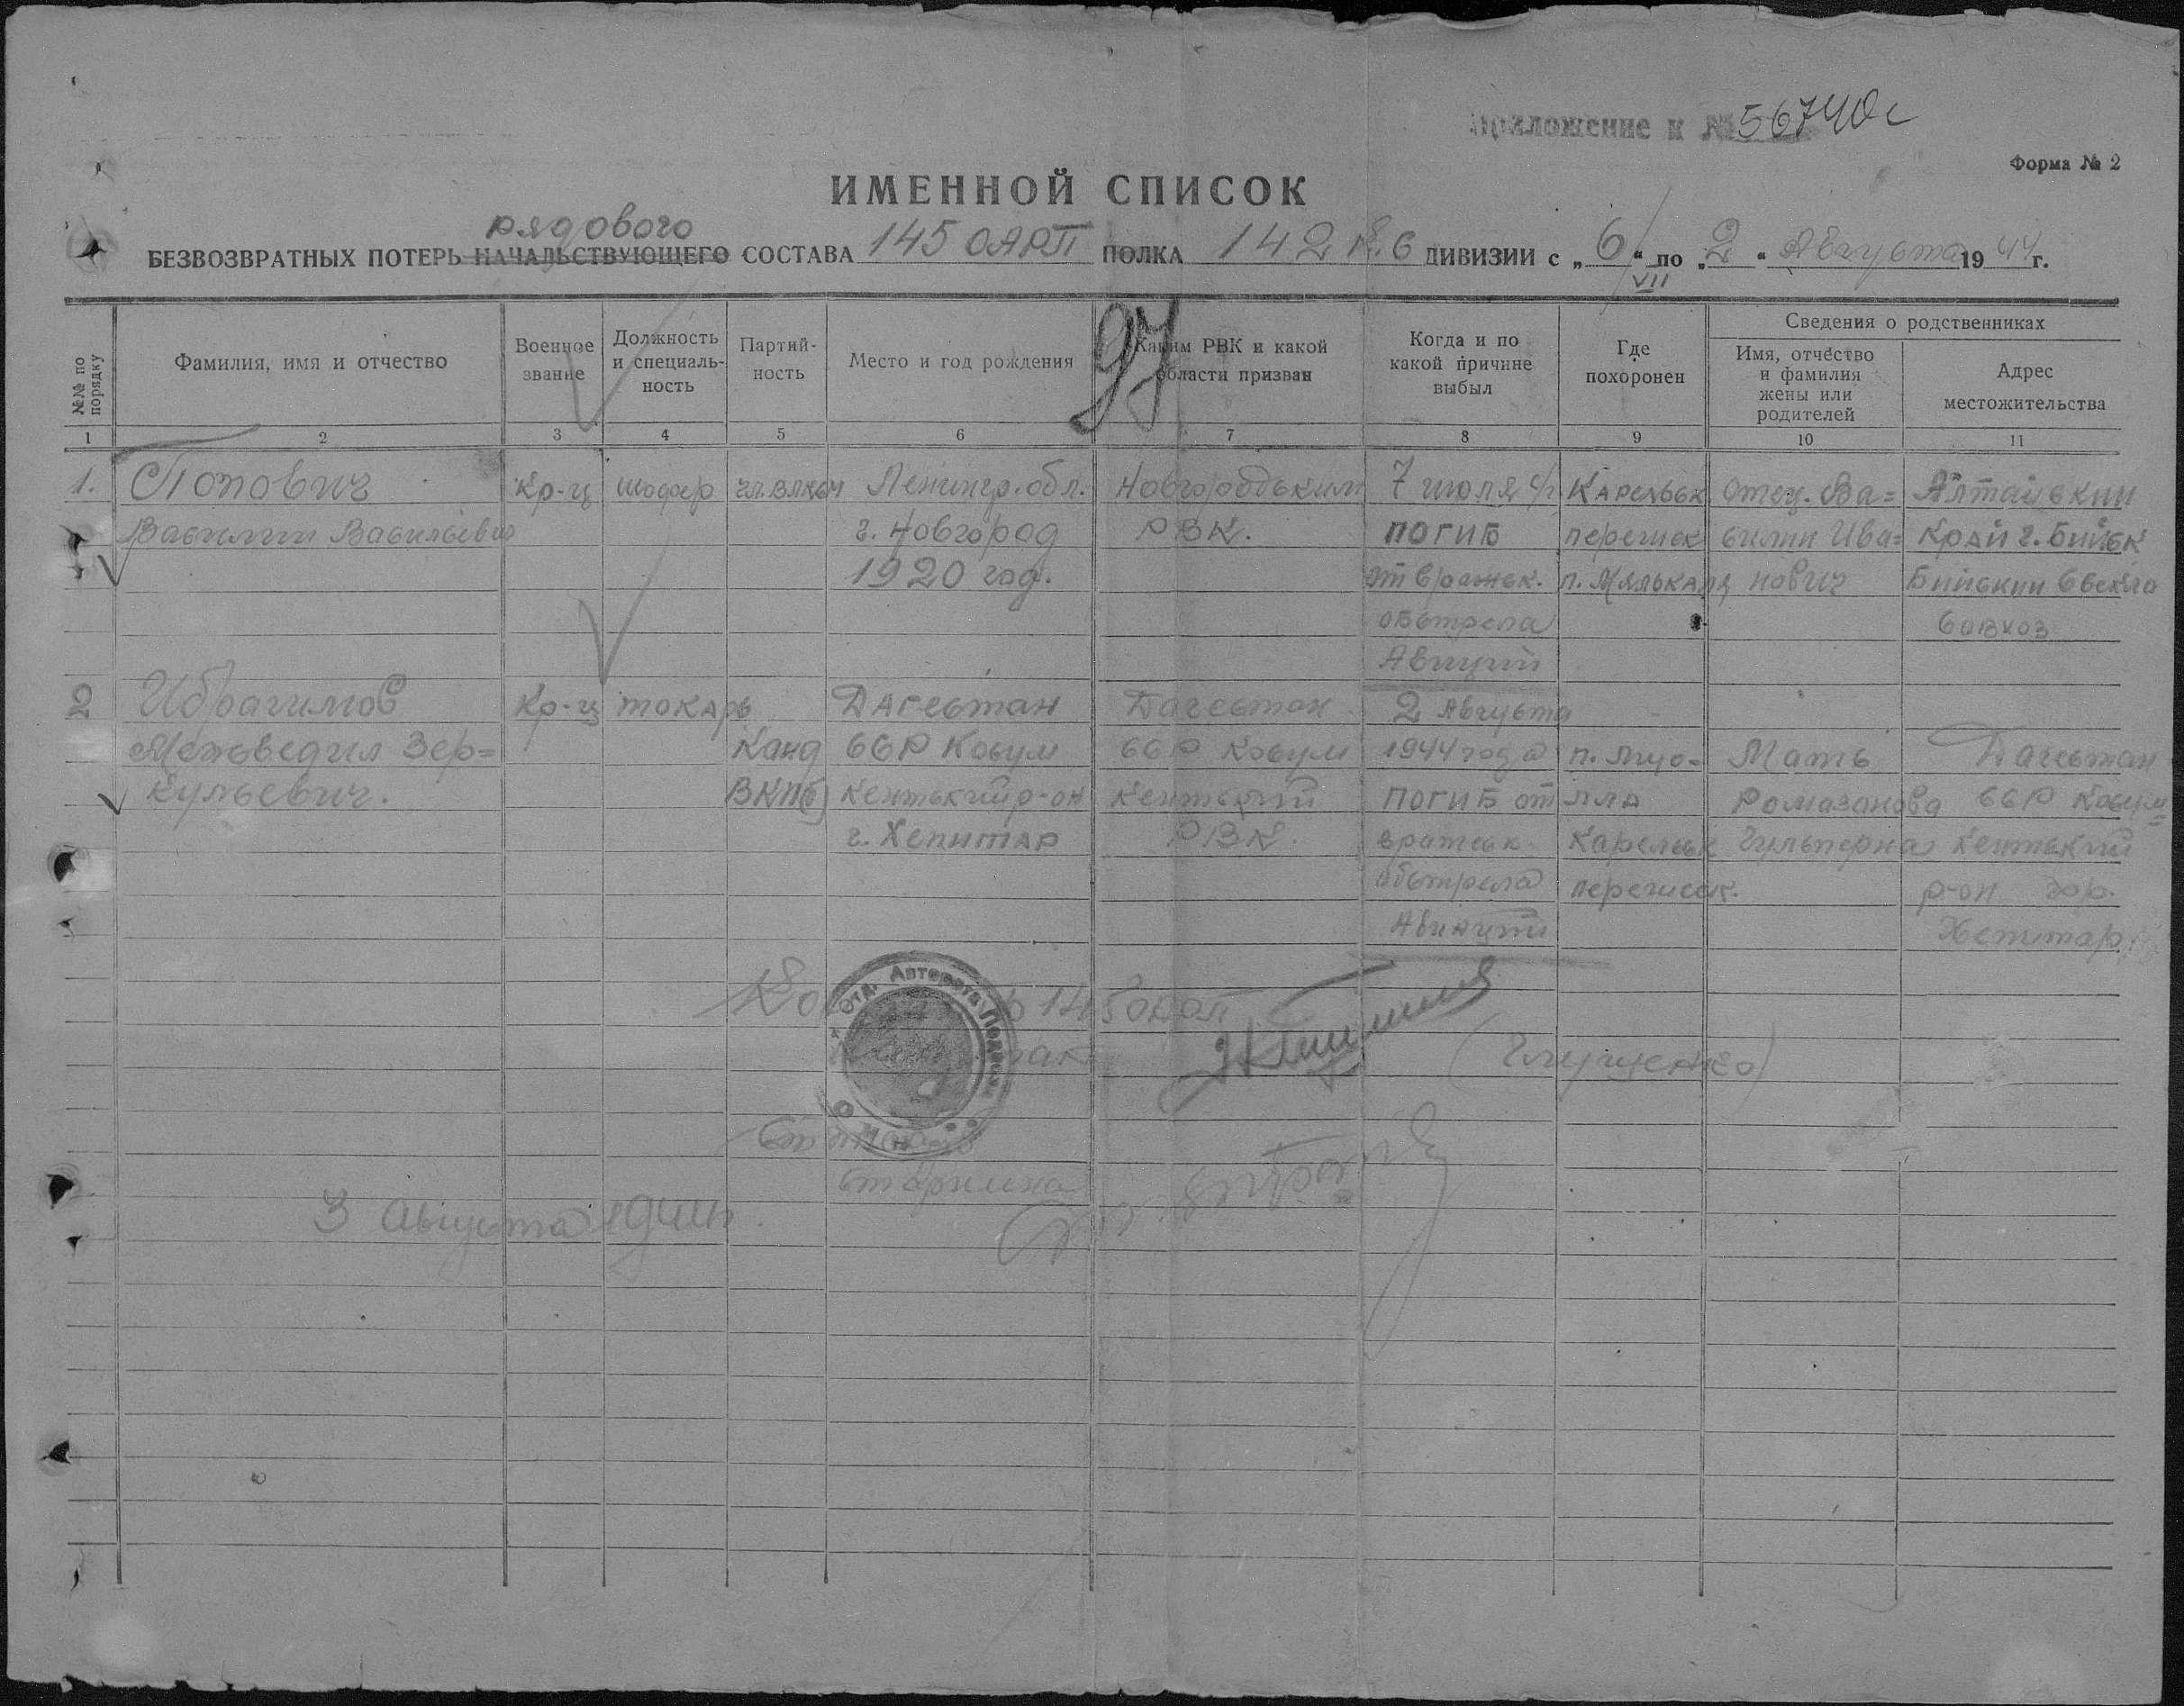 Приложение к № 56740с
Форма № 2
ИМЕННОЙ СПИСОК
рядового
БЕЗВОЗВРАТНЫХ ПОТЕРЬ НАЧАЛЬСТВУЮЩЕГО СОСТАВА 145 ОАРП ПОЛКА 142 ДИВИЗИИ с „6/VII“ по „2“ Августа 1944 г.
97
№№ по порядку
Фамилия, имя и отчество
Военное звание
Должность и специаль-ность
Партий-ность
Место и год рождения
Каким РВК и какой области призван
Когда и по какой причине выбыл
Где похоронен
Сведения о родственниках
Имя, отчество и фамилия жены или родителей
Адрес местожительства
1 2 3 4 5 6 7 8 9 10 11
1. Попович Кр-ц шофер чл. ВЛКСМ Ленингр. обл. Новгородским 7 июля с/г Карельск Отец. Ва= Алтайский
Василий Васильевич г. Новгород РВК. погиб перешек силий Ива= Край г. Бийск
1920 год. от вражеск. п. Мялькаля нович Бийский
обстрела совхоз
Авиций
2 Ибрагимов Кр-ц токарь Дагестан Дагестан 2 Августа
Межведил Зер= Канд ССР Косум ССР Косум 1944 года п. Муо- Мать Дагестан
кульевич. ВКП(б) Кентский р-он Кентский погиб от лла Ромазанова ССР Косум=
г. Хепитар РВК. вражеск. Карельск Гульперна Кентский
обстрела перешеек. р-он гор.
Авиации Хепитар
145 оарп
(Глущенко)
старшина
3 Августа 1944г.